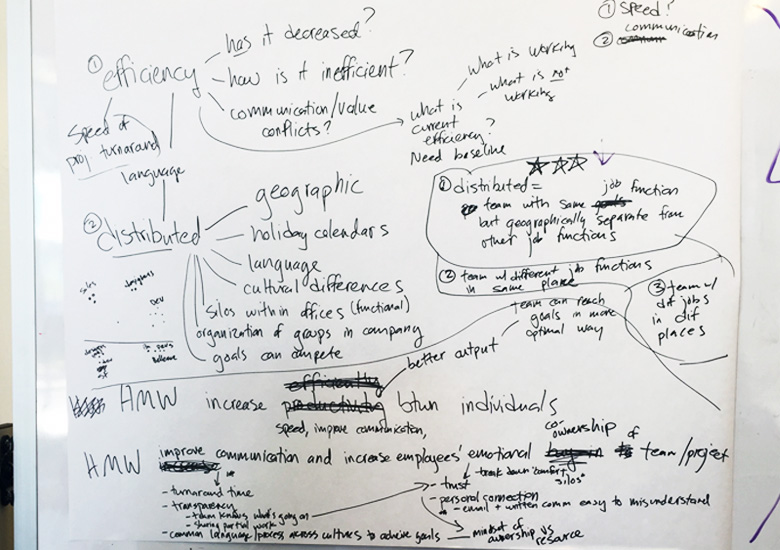 ① Speed?
② communication
① efficiency
has it decreased?
how is it inefficient?
communication/value
conflicts?
what is
current
efficiency?
Need baseline
what is working
what is not
working
Speed of
proj turnaround
language
② distributed
geographic
holiday calendars
language
cultural differences
silos within offices (functional)
organization of groups in company
goals can compete
silos
designers
Dev
① distributed =
team with same job function
but geographically separate from
other job functions
② team w/ different job functions
in same place
③ team w/
dif jobs
in dif
places
team can reach
goals in more
optimal way
better output
HMW increase efficiently productivity btwn individuals
speed, improve communication,
HMW improve communication and increase employees' emotional buy-in co-ownership of team/project
- turnaround time
- transparency
- team knows what's going on
- sharing partial work
- common language/process across cultures to achieve goals
break down "comfort
silos"
- trust
- personal connection
- email + written comm easy to misunderstand
- mindset of
ownership vs
resource